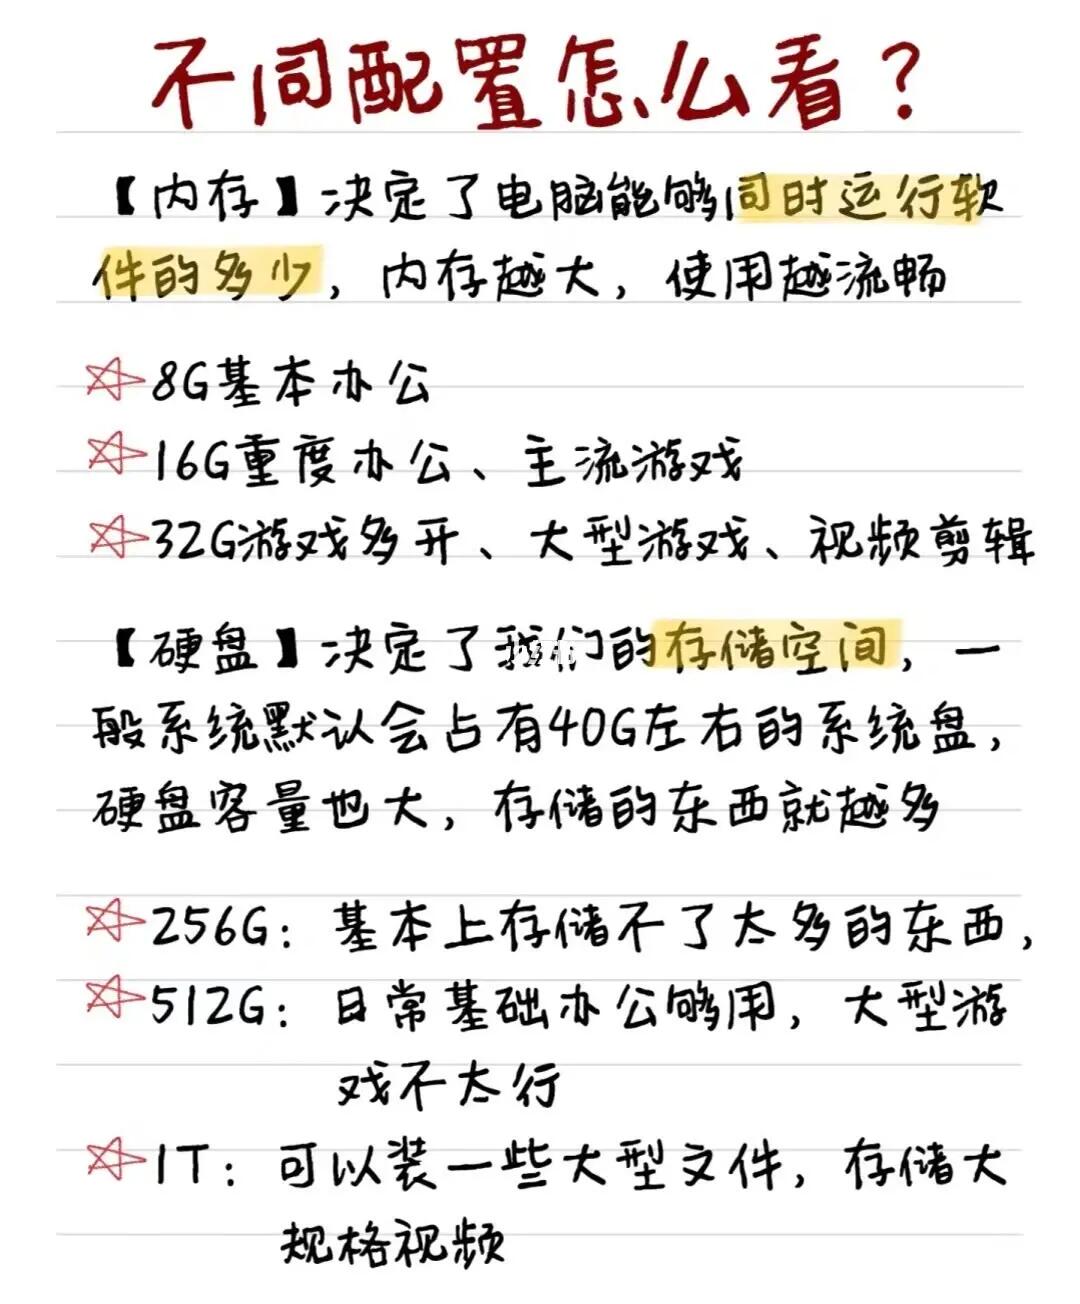 不同配置怎么看？
【内存】决定了电脑能够同时运行软
件的多少，内存越大，使用越流畅
8G基本办公
16G重度办公、主流游戏
32G游戏多开、大型游戏、视频剪辑
【硬盘】决定了我们的存储空间，一
般系统默认会占有40G左右的系统盘，
硬盘容量也大，存储的东西就越多
256G：基本上存储不了太多的东西，
512G：日常基础办公够用，大型游
戏不太行
1T：可以装一些大型文件，存储大
规格视频